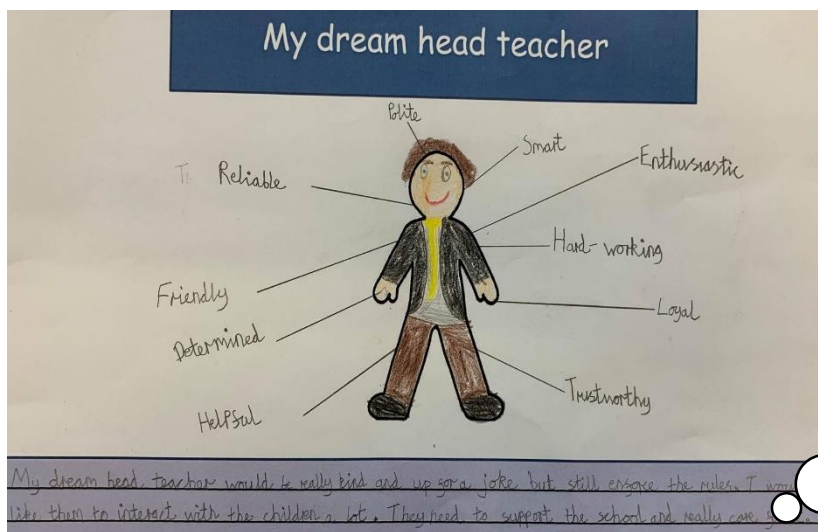 My dream head teacher
Polite
Smart
Enthusiastic
Reliable
Hard-working
Friendly
Loyal
Determined
Trustworthy
Helpful
My dream head teacher would be really kind and up for a joke but still enforce the rules. I
like them to interact with the children a lot. They need to support the school and really care